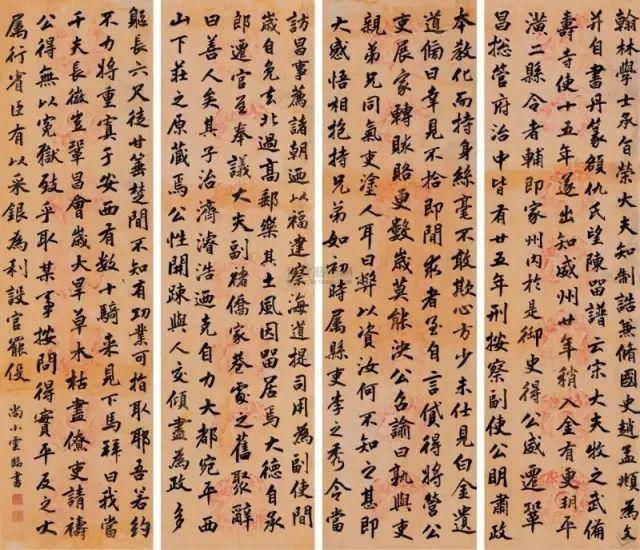 翰林學士承旨榮大夫知制誥兼脩國史趙孟頫為文
并自書丹篆額仇氏望陳留譜云宋大夫牧之武備
壽寺使十五年遂出知威州廿年稍入金有更玥平
潢二縣令者輔即家州內於是御史得公咸遷鞏
昌捴管府治中皆有廿五年刑按察副使公明肅政
本教化而持身絲毫不敢欺心方少未仕見白金遺
道偏曰幸見不拾即間求者至自言貸得將營公
吏展家轉賕賂更數歲莫能決公召諭曰孰與吏
親弟兄同氣吏塗人耳曰弊以資汝何不知之甚即
大感悟相抱持兄弟如初時属縣吏李之秀令當
訪昌事薦諸朝迺以福建察海道提司用為副使間
歲自免去北過高郵樂其土風因留居焉大德自承
郎遷官至奉議大夫副褚僑家巷處之舊聚辭
曰善人矣其子治濟濬浩迺克自力大都宛平西
山下莊之原蔵焉公性開踈與人交傾盡為政多
軀長六尺徒廿箠楚間不知有功業可指取耶吾若約
不力將重寘于安西有數十騎来見下馬拜曰我當
千夫長徵豈鞏昌會歲大旱草木枯盡僚吏請禱
公得無以寃獄致乎取某事按問得實平反之大
属行省臣有以采銀為利設官罷伇
尚小雲臨書